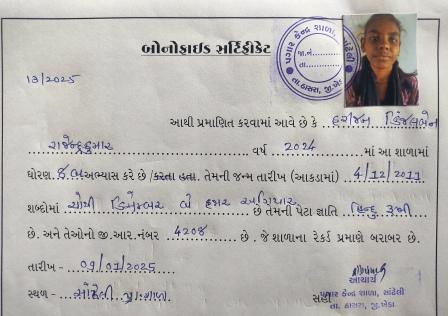 બોનોફાઇડ સર્ટિફીકેટ
પગાર કેન્દ્ર શાળા, સાંઢેલી
જા.નં.
તા.
તા.ઠાસરા, જી.ખેડા
13/2025
આથી પ્રમાણિત કરવામાં આવે છે કે હરીજન હિંજલબેન
રાજેન્દ્રકુમાર વર્ષ 2024 માં આ શાળામાં
ધોરણ 8 અભ્યાસ કરે છે /કરતા હતા. તેમની જન્મ તારીખ (આકડામાં) 4/12/2011
શબ્દોમાં ચોથી ડિસેમ્બર બે હજાર અગિયાર છે તેમની પેટા જ્ઞાતિ હિન્દુ
છે. અને તેઓનો જી.આર.નંબર 4208 છે. જે શાળાના રેકર્ડ પ્રમાણે બરાબર છે.
તારીખ - 01/01/2025
આચાર્ય
સ્થળ - સાંઢેલી પ્રા.શાળા. સહી
પગાર કેન્દ્ર શાળા, સાંઢેલી
તા. ઠાસરા, જી.ખેડા